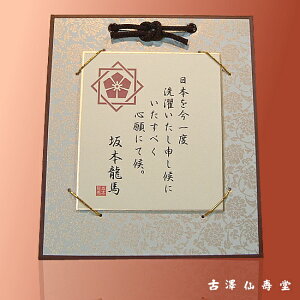 日本を今一度
洗濯いたし申し候に
いたすべく
心願にて候。
坂本龍馬
古澤仙寿堂